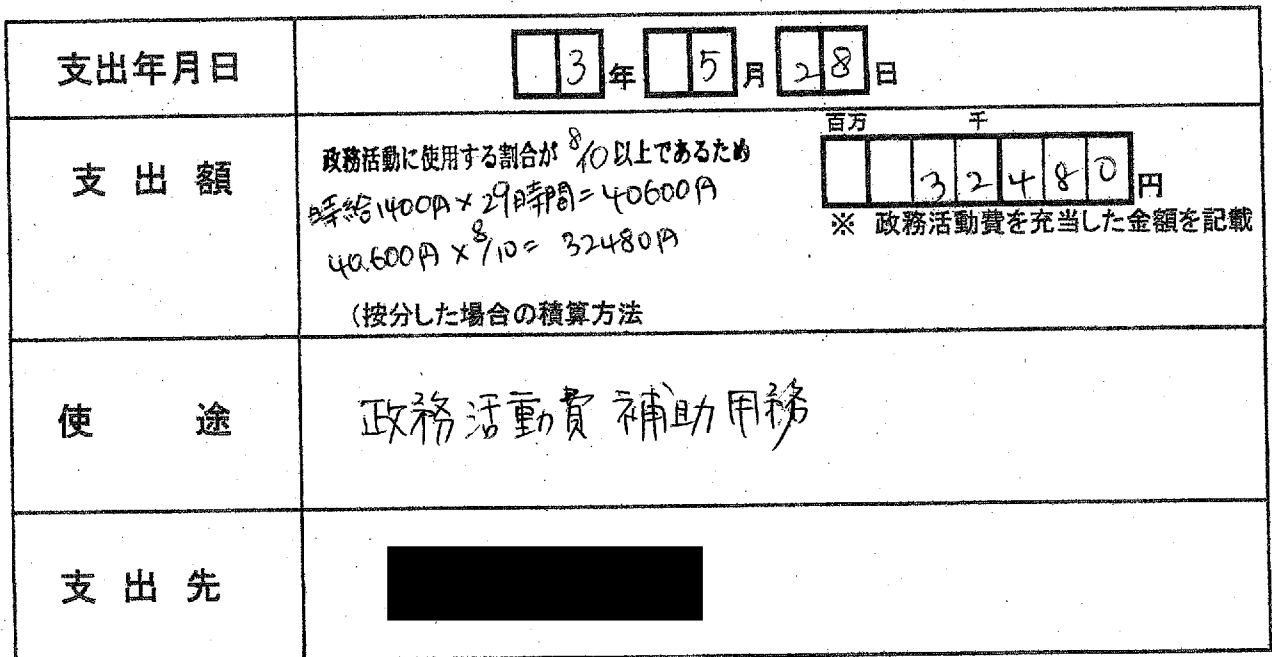 支出年月日 3年 5月 28日
支出額
政務活動に使用する割合が 8/10 以上であるため
時給1400円×29時間=40600円
40.600円×8/10= 32480円
(按分した場合の積算方法
百万 千
32480円
※ 政務活動費を充当した金額を記載
使途 政務活動費補助用務
支出先